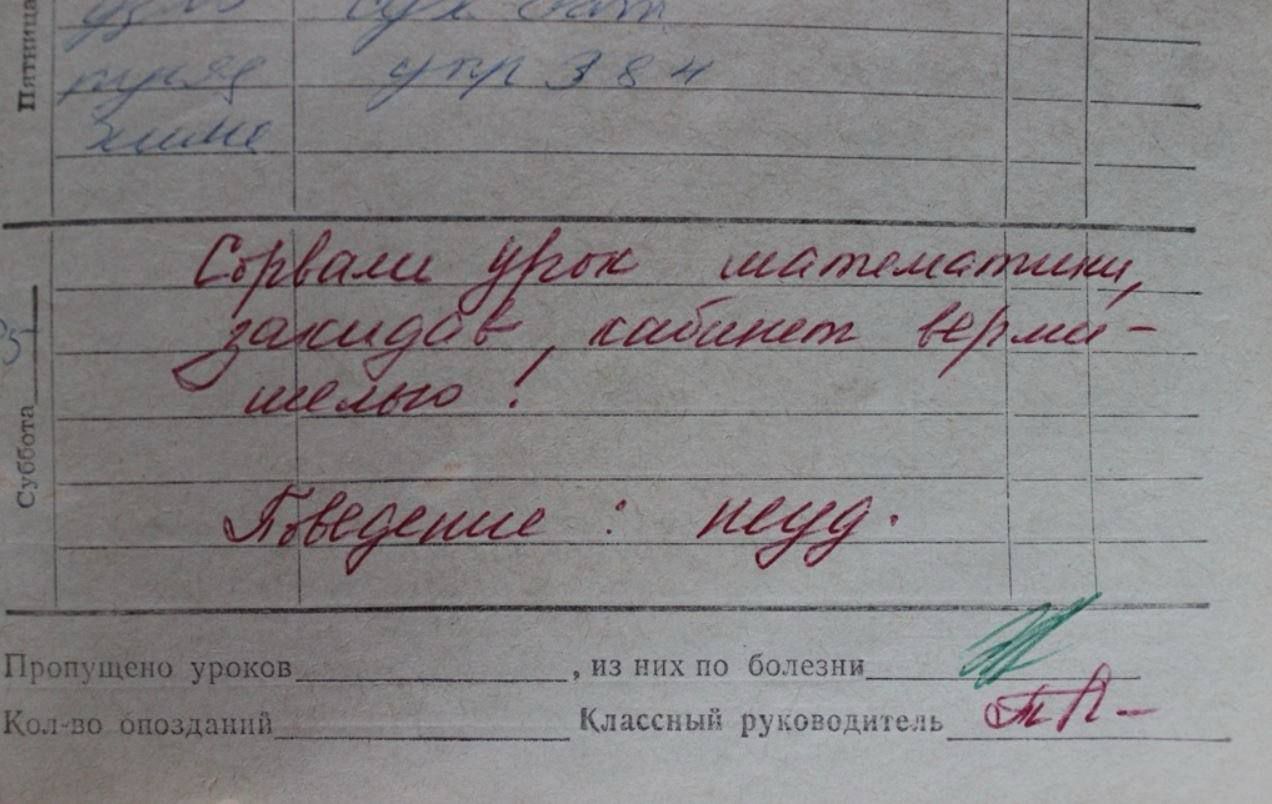 Пятница
упр 384
хими
Сорвали урок математики,
закидав, кабинет верми-
шелью!
Суббота
Поведение: неуд.
Пропущено уроков, из них по болезни
Кол-во опозданий Классный руководитель